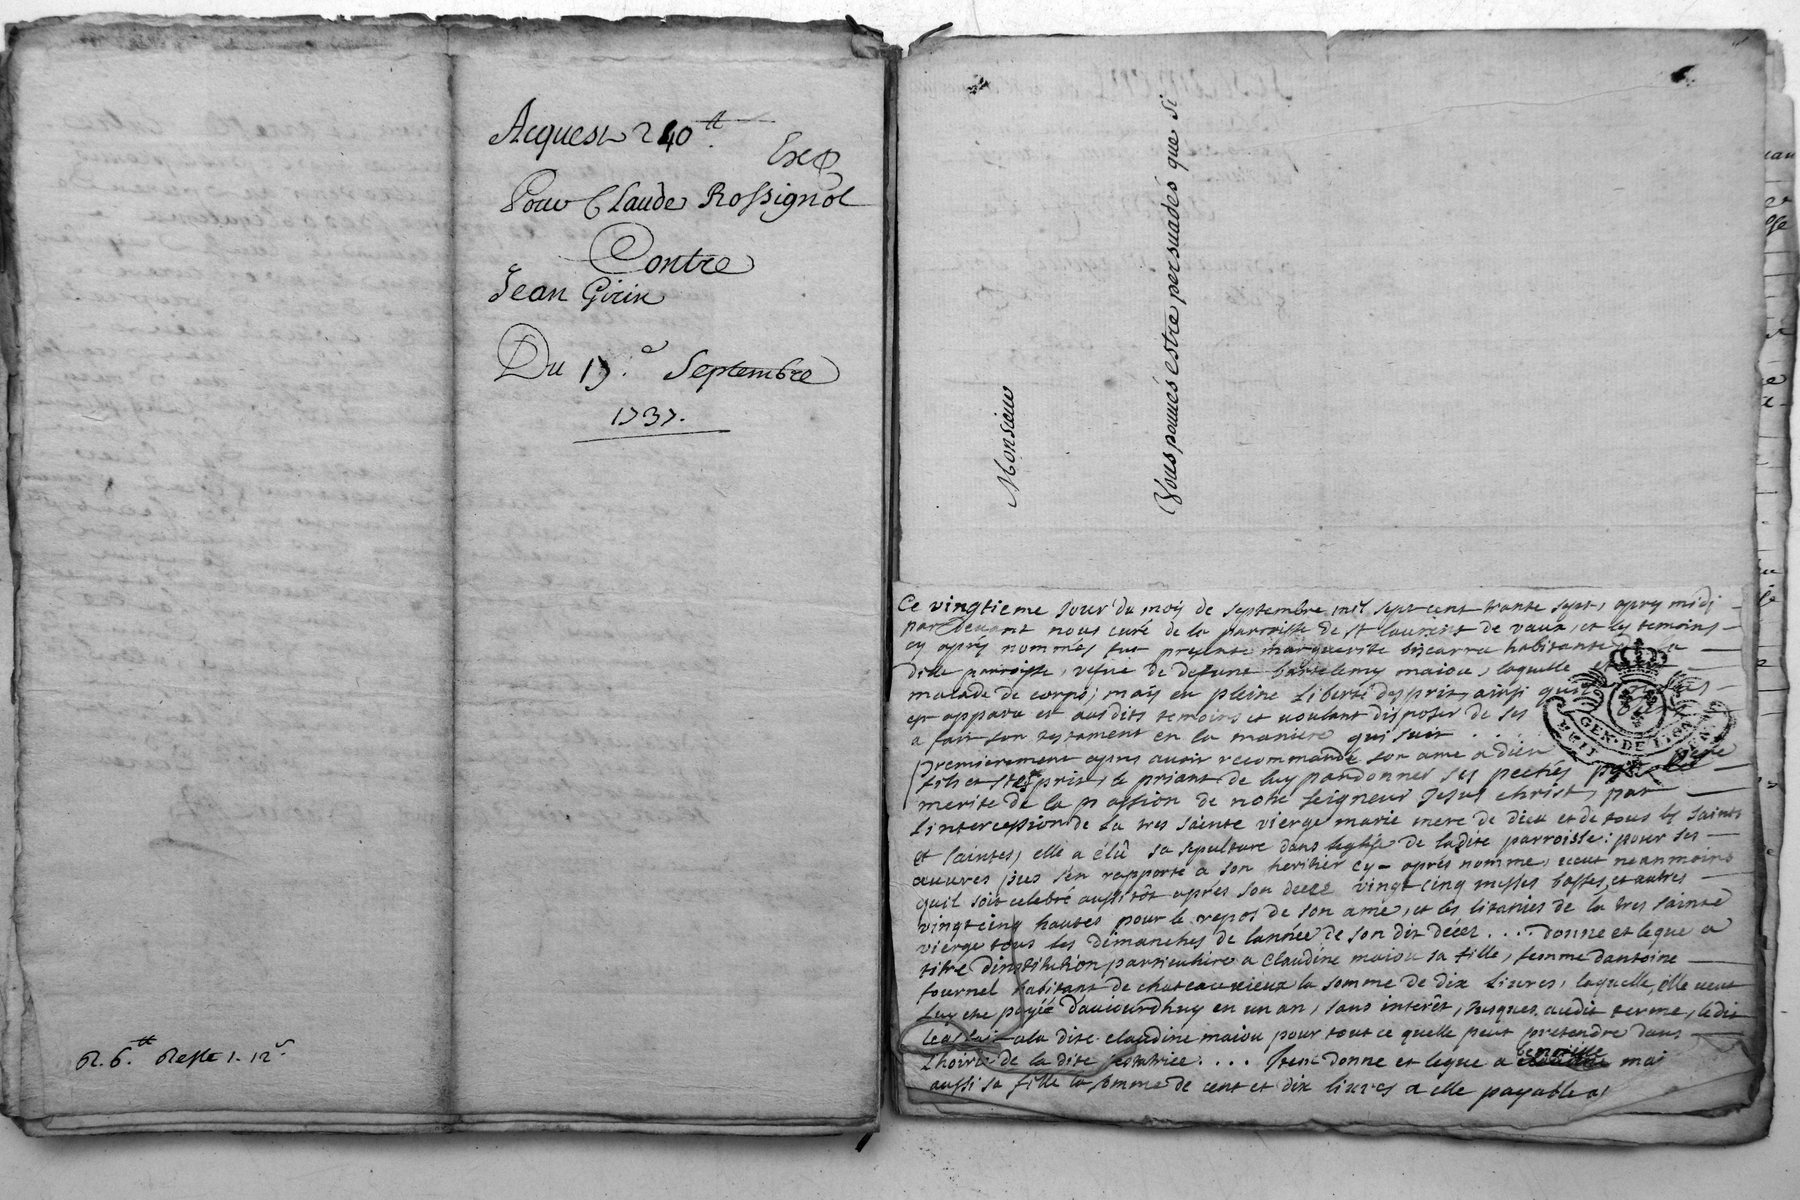 Acquest 240<sup>tt</sup>.
Exp
Pour Claude Rossignol
Contre
Jean Girin
Du 19.e Septembre
1737.
R. 6.tt Reste 1. 12.s
Monsieur
Vous pouués estre persuadés que si
Ce vingtieme Jour du moy de septembre mil sept cent trante sept, apres midi
pardevant nous curé de la parroisse de st laurent de vaux, et les temoins
cy aprés nommés fut presente marguerite biscarra habitante
dite parroisse, vefue de defunt bartelemy maiou, laquelle
malade de corps; mais en pleine liberté desprit, ainsi quil
est apparu et ausdits temoins et voulant disposer de ses
a fait son testament en la maniere qui suit . . .
premierement apres avoir recommandé son ame a dieu
fils et st esprit, le priant de luy pardonner ses pechés par le
merite de la passion de notre seigneur Jesus christ, par
Linterception de la tres sainte vierge marie mere de dieu et de tous les saints
et saintes, elle a élû sa sepulture dans leglise de ladite parroisse: pour ses
œuures pies sen rapporte a son heritier cy-aprés nommé, veut neanmoins
quil soit celebré aussitôt aprés son decez vingt cinq messes basses, et autres
vingt cinq hautes pour le repos de son ame, et les litanies de la tres sainte
vierge tous les dimanches de lannée de son dit décéz . . . . donne et legue a
titre dinstitution particuliere a claudine maiou sa fille, femme dantoine
fournel habitant de chateauvieux la somme de dix livres, laquelle, elle veut
luy etre payée daujourdhuy en un an, sans interêt, Jusques audit terme, ledit
a la dite claudine maiou pour tout ce quelle peut pretendre dans
Lhoirie de la dite testatrice . . . . Item donne et legue a benoiste mai
aussi sa fille la somme de cent et dix livres a elle payable a
GEN. DE LION